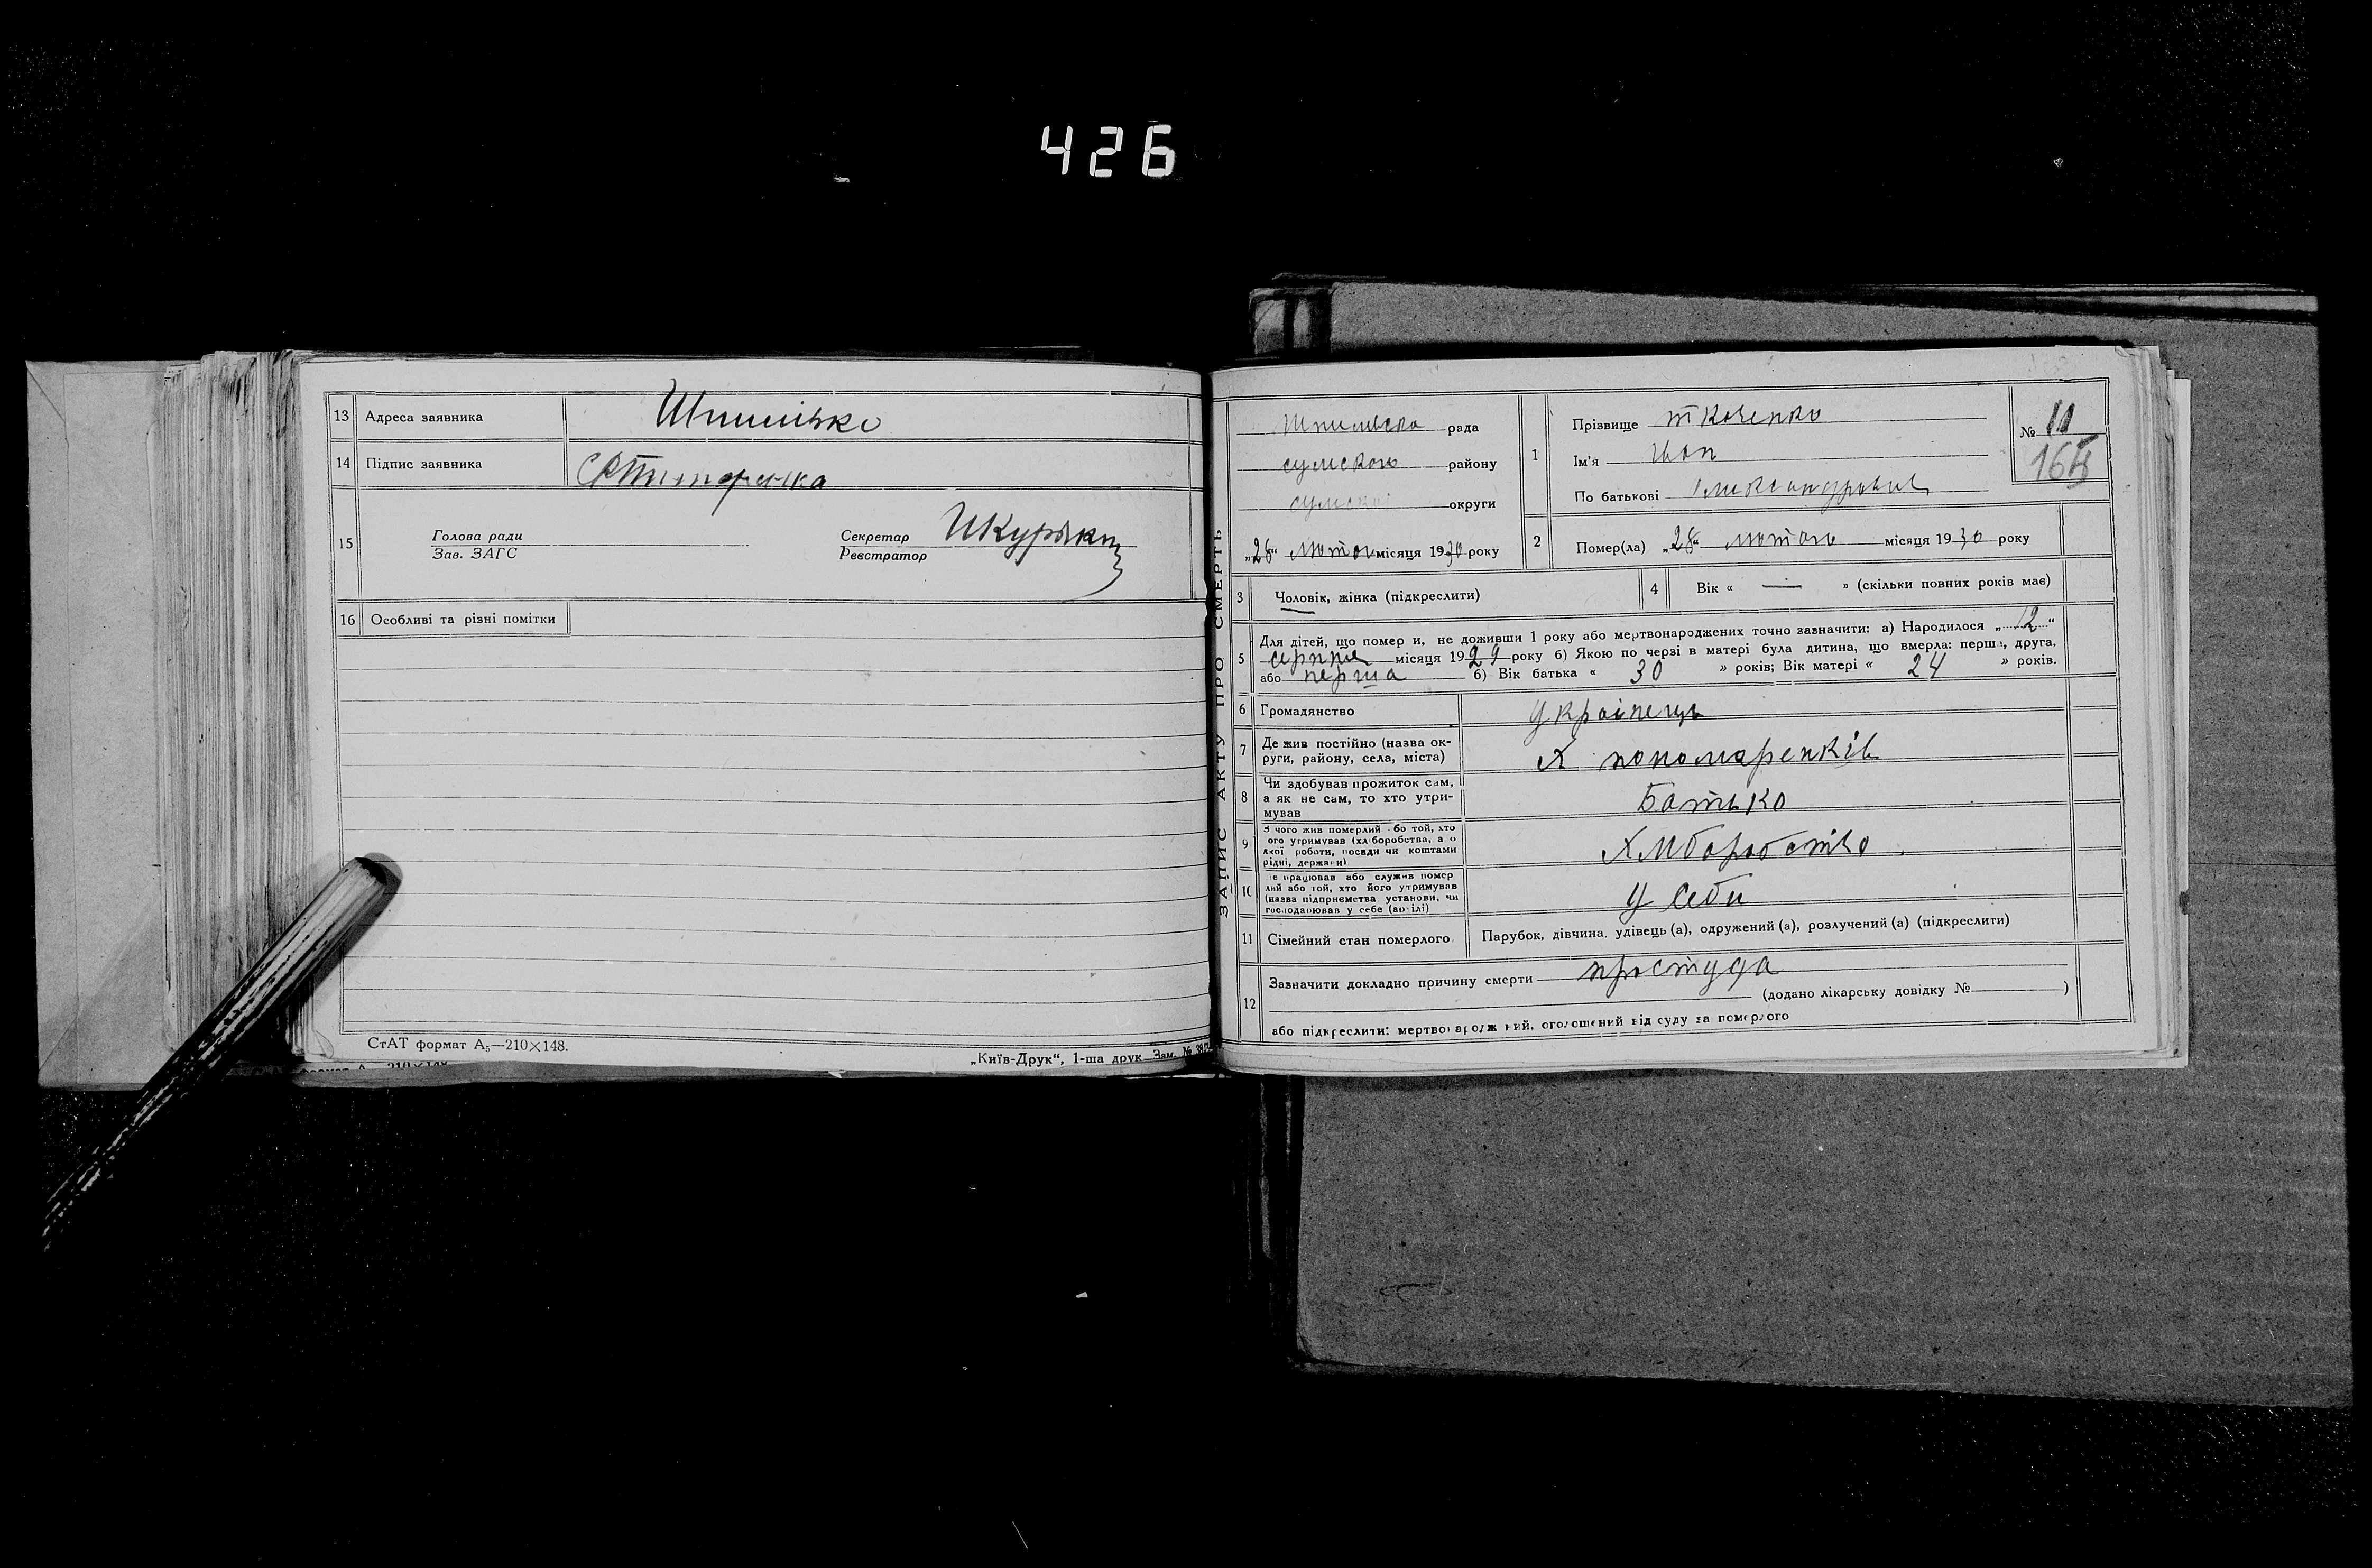 426
13 Адреса заявника
14 Підпис заявника
15 Голова ради
Зав. ЗАГС
Секретар
Реєстратор
16 Особливі та різні помітки
СтАТ формат А₅—210×148.
„Київ-Друк“, 1-ша друк. Зам. №
ЗАПИС АКТУ ПРО СМЕРТЬ
рада
району
округи
„28“ лютого місяця 1930 року
1 Прізвище Ткаченко
Ім'я Іван
По батькові
№ 11
2 Помер(ла) „28“ лютого місяця 1930 року
3 Чоловік, жінка (підкреслити)
4 Вік « — » (скільки повних років має)
5 Для дітей, що померли, не доживши 1 року або мертвонароджених точно зазначити: а) Народилося „12“
серпня місяця 1929 року б) Якою по черзі в матері була дитина, що вмерла: перша, друга,
або перша б) Вік батька « 30 » років; Вік матері « 24 » років.
6 Громадянство українець
7 Де жив постійно (назва ок-
руги, району, села, міста) Х пономаренків
8 Чи здобував прожиток сам,
а як не сам, то хто утри-
мував Батько
9 З чого жив померлий або той, хто
його утримував (хліборобства, а о
якої роботи, посади чи коштами
рідні, держави) Хліборобство
10 Де працював або служив помер
лий або той, хто його утримував
(назва підприємства установи, чи
господарював у себе (артілі) У себе
11 Сімейний стан померлого Парубок, дівчина, удівець (а), одружений (а), розлучений (а) (підкреслити)
12 Зазначити докладно причину смерти простуда
(додано лікарську довідку № )
або підкреслити: мертвонароджений, оголошений від суду за померлого